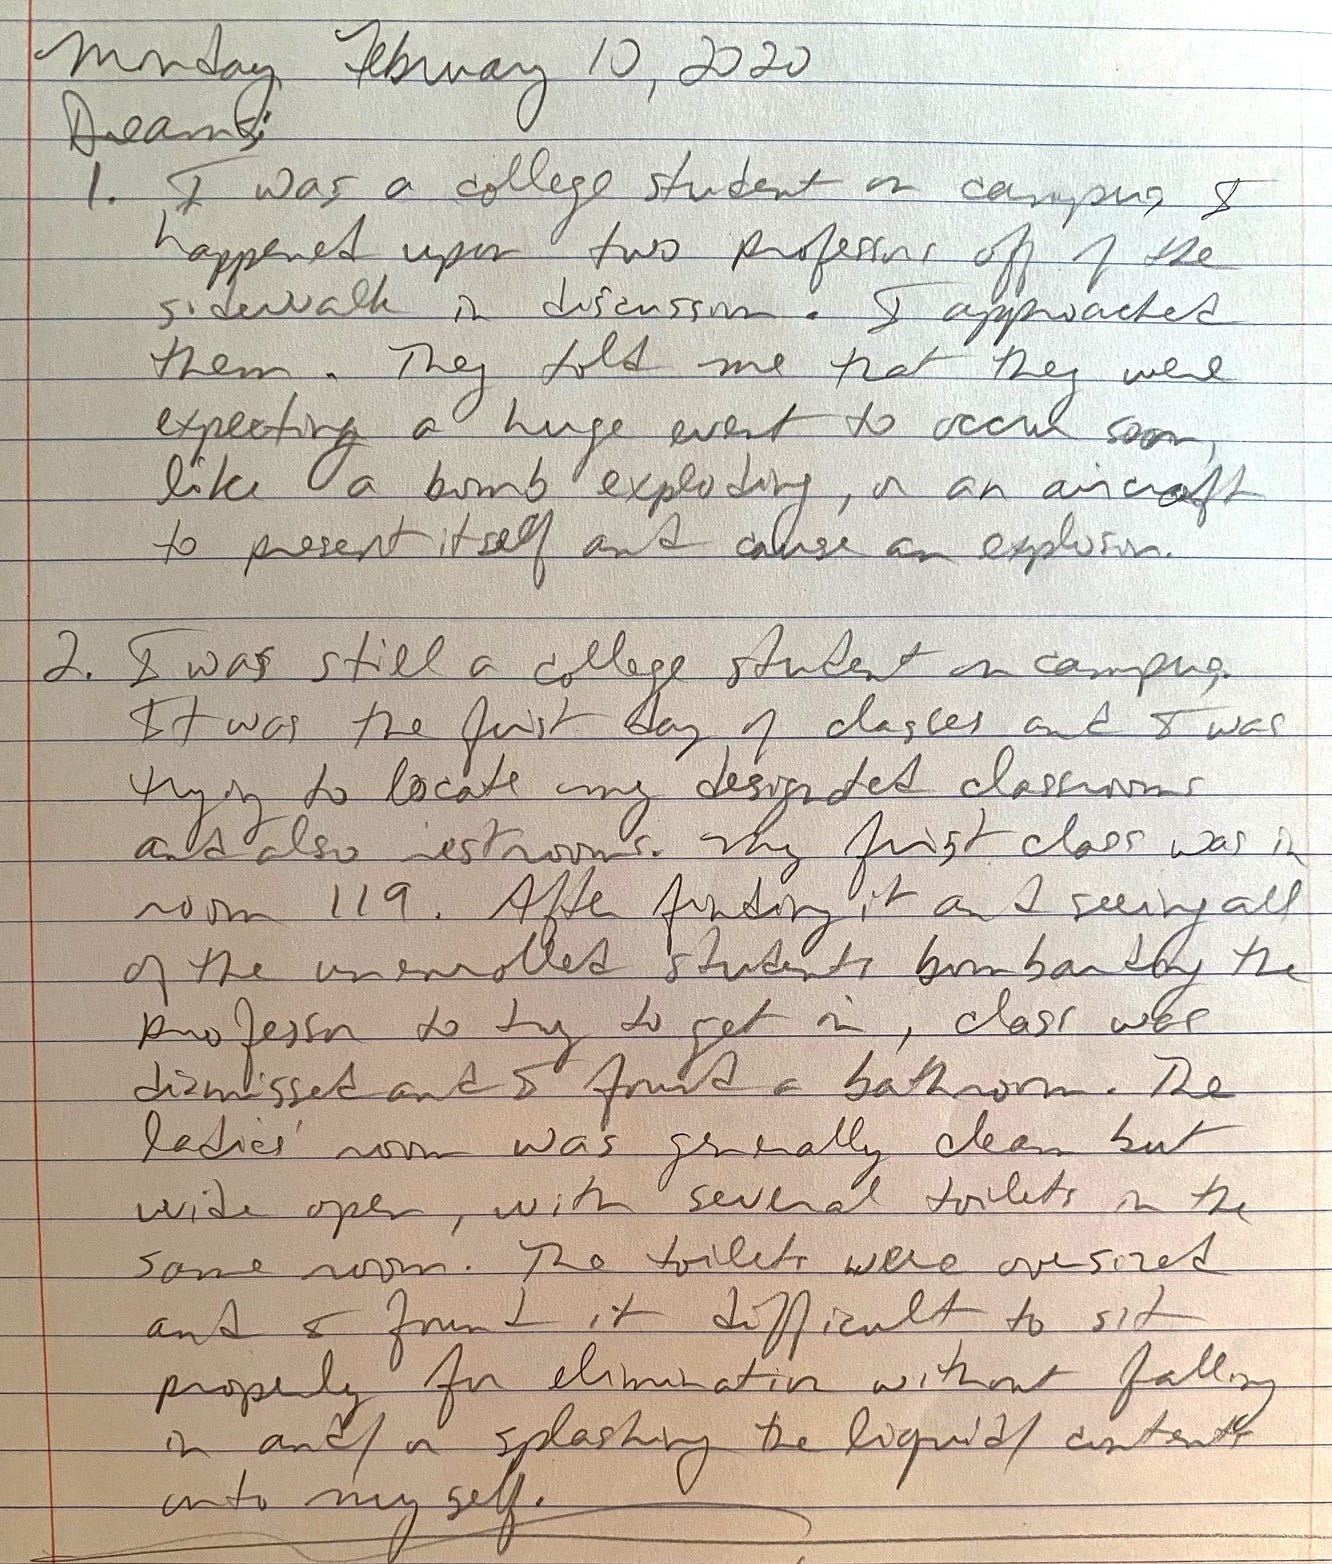 Monday February 10, 2020
Dreams:
1. I was a college student on campus, I
happened upon two professors off of the
sidewalk in discussion. I approached
them. They told me that they were
expecting a huge event to occur soon,
like a bomb exploding, or an aircraft
to present itself and cause an explosion.
2. I was still a college student on campus.
It was the first day of classes and I was
trying to locate my designated classrooms
and also restrooms. My first class was in
room 119. After finding it and seeing all
of the unenrolled students bombarding the
professor to try to get in, class was
dismissed and I found a bathroom. The
ladies' room was generally clean but
wide open, with several toilets in the
same room. The toilets were oversized
and I found it difficult to sit
properly for elimination without falling
in and/or splashing the liquid/contents
onto myself.